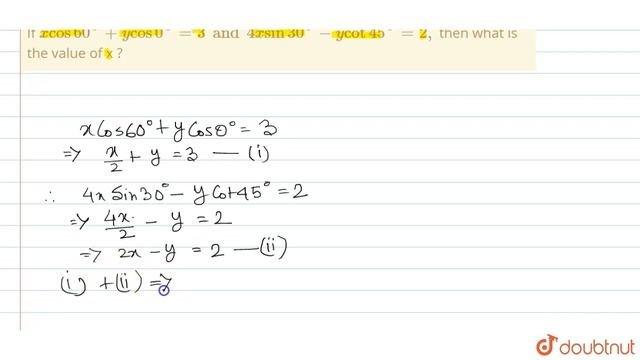 If x cos 60° + y cos 0° = 3 and 4x sin 30° - y cot 45° = 2, then what is
the value of x ?
x Cos60° + y Cos0° = 3
=> x/2 + y = 3 — (i)
∴ 4x Sin30° - y Cot45° = 2
=> 4x/2 - y = 2
=> 2x - y = 2 — (ii)
(i) + (ii) =>
doubtnut